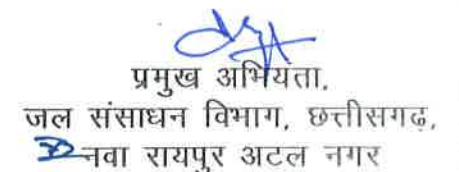 प्रमुख अभियता,
जल संसाधन विभाग, छत्तीसगढ़,
नवा रायपुर अटल नगर